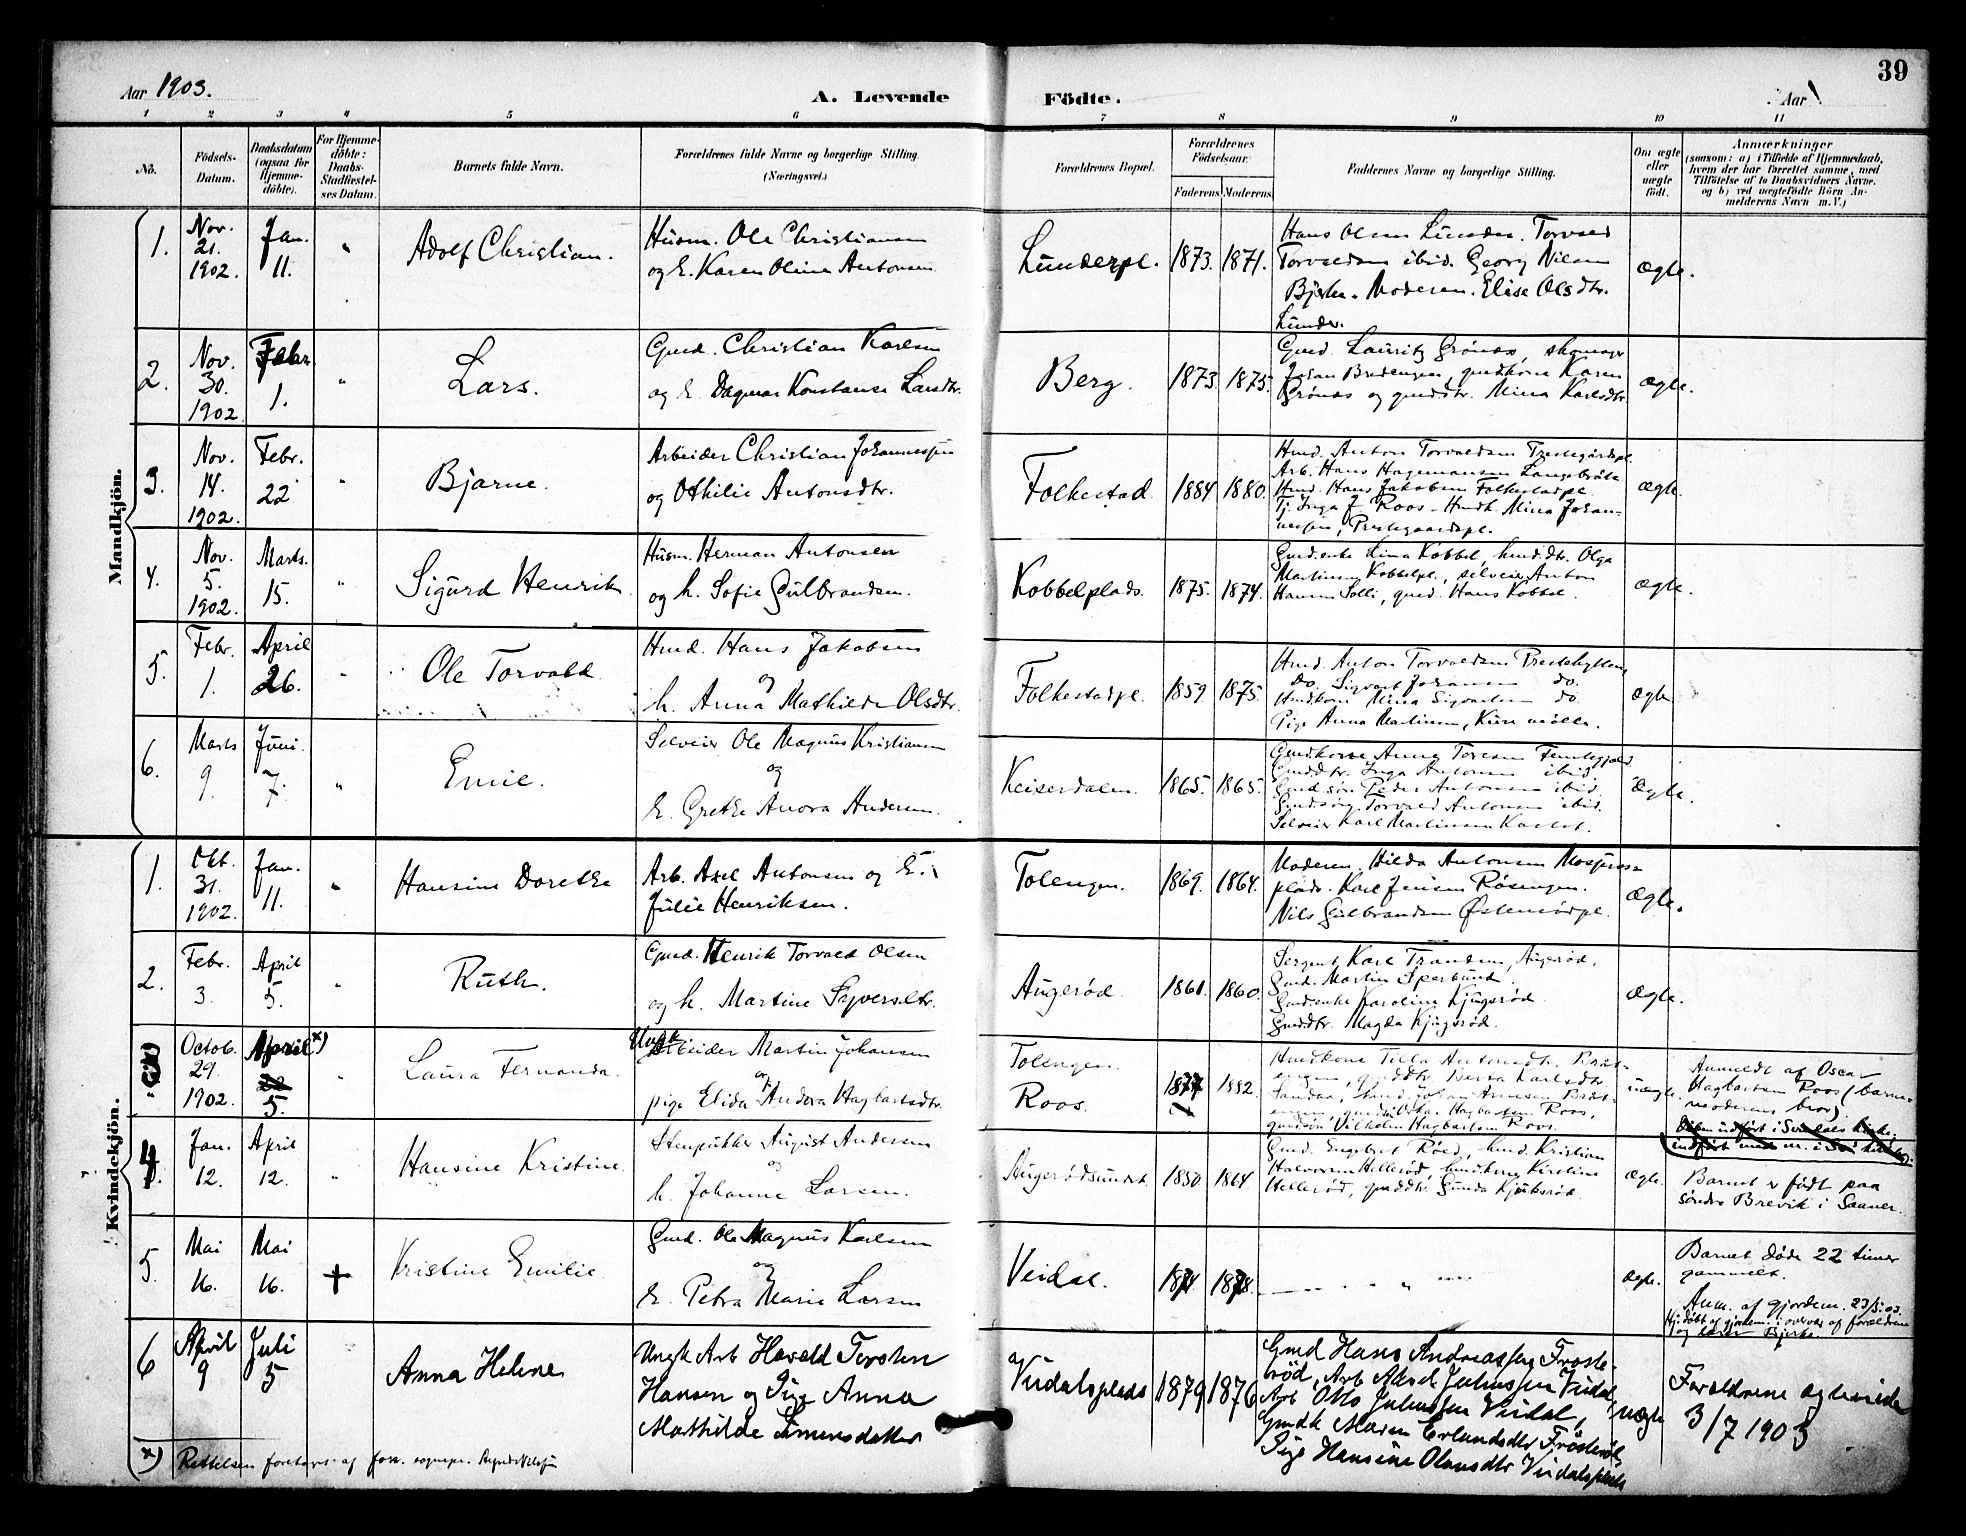 39
Aar 1903.
A. Levende Födte.
Aar
1 2 3 4 5 6 7 8 9 10 11
No.
Födsels-Datum.
Daabsdatum (ogsaa for Hjemmedöbte).
For Hjemmedöbte: Daabs-Stadfæstelses Datum.
Barnets fulde Navn.
Forældrenes fulde Navne og borgerlige Stilling. (Næringsvei.)
Forældrenes Bopæl.
Forældrenes Födselsaar.
Faderens Moderens
Faddernes Navne og borgerlige Stilling.
Om ægte eller uægte født.
Anmærkninger
(saasom: a) i Tilfælde af Hjemmedaab, hvem der har forrettet samme, med Tilføielse af to Daabsvidners Navne, og b) ved uægtefödte Börn Anmelderens Navn m. V.)
Mandkjön.
1. Nov. 21. 1902. Jan. 11. " Adolf Christian.
Husm. Ole Christiansen
og E. Karen Oline Antonsen
Lunderpl. 1873. 1871.
Hans Olsen Lunder. Torvald
Torvaldsen ibid. Georg Nilsen
Bjerke. Moderen. Elise Olsdtr.
Lunder.
ægte.
2. Nov. 30. 1902 Febr. 1. " Lars.
Gmd. Christian Karlsen
og E. Dagmar Konstanse Larsdtr.
Berg. 1873. 1875.
Gmd. Lauritz Grönås, skomager
Johan Bredengen, gmdkone Karen
Grönås og gmddtr. Mina Karlsdtr.
ægte.
3. Nov. 14. 1902. Febr. 22 " Bjarne.
Arbeider Christian Johannessen
og Othilie Antonsdtr.
Folkestad. 1884 1880.
Hmd. Anton Torvaldsen Prestegårdspl.
Arb. Hans Hagemansen
Hmd. Hans Jakobsen Folkestadpl.
Tj. Inga J Roos - Hmdk. Mina Johan-
nessen, Prestegaardspl.
ægte.
4. Nov. 5. 1902. Marts. 15. " Sigurd Henrik
Husm. Herman Antonsen
og h. Sofie Gulbrandsen.
Kobbelplads. 1875. 1874.
Gmd.enke Lina Kobbel, hmd.dtr. Olga
Martinsen Kobbelpl., selveier Anton
Hansen Solli, gmd. Hans Kobbel.
ægte.
5. Febr. 1. April 26. " Ole Torvald
Hmd. Hans Jakobsen
og
h. Anna Mathilde Olsdtr.
Folkestadpl. 1859 1875.
Hmd. Anton Torvaldsen Prestehytten,
do. Sigvart Johansen do.
Hmdkone Mina Sigvartsen do
Pige Anna Martinsen,
ægte
6. Marts 9. Juni. 7. " Emil.
Selveier Ole Magnus Kristiansen
og
E. Grethe Anora Andersen.
Keiserdalen. 1865. 1865.
Gmdkone Anne Toresen
Gmddtr. Inga Antonsen ibid.
Gmd.søn Peder Antonsen ibid.
Gmdsøn Torvald Antonsen ibid.
Selveier Karl Martinsen
Ægte.
Kvindekjön.
1. Okt. 31. 1902. Jan. 11. " Hansine Dorethe
Arb. Axel Antonsen og E.
Julie Henriksen.
Tolengen. 1869. 1864.
Moderen, Hilda Antonsen
plads. Karl Jensen Røsengen.
Nils Gulbrandsen
Ægte.
2. Febr. 3. April 5. " Ruth.
Gmd. Henrik Torvald Olsen
og h. Martine Syversdtr.
Augerød. 1861. 1860.
Sergent Karl Frandsen, Augerød.
Gmd. Martin Sperbund.
Gmd.enke Karoline Kjugsrød.
Gmd.dtr. Magda Kjugsrød.
Ægte.
Octob. 29. 1902 April x) 22 5. " Laura Fernanda.
Ungk
Arbeider Martin Johansen
og
pige Elida Andora Hagbartsdtr.
Tolengen.
Roos. 1877 1882.
Hmdkone Tilla Antonsdtr.
gmddtr. Berta Karlsdtr.
gmdsøn Oskar Hagbartsen Roos,
gmdsøn Vilhelm Hagbartsen Roos.
uægte.
Anmeldt af Oscar
Hagbartsen Roos (barne-
moderens bror).
4. Jan. 12. April 12. " Hansine Kristine
Stenhukker August Andersen
og
h. Johanne Larsen.
Augerødsundet. 1850 1864
Gmd. Engebret Röed, hmd. Kristian
Halvorsen Hellerød, hmdkone Kirstine
Hellerød, gmddtr. Gunda Kjuksrød.
ægte.
Barnet er födt paa
söndre Brevik i Saaner.
5. Mai 16. Mai 16. + Kristine Emilie
Gmd. Ole Magnus Karlsen
og
E. Petra Marie Larsen
Veidal. 1874 1878.
ægte.
Barnet døde 22 timer
gammelt.
Anm. af gjordem. 23/5.03.
Hj.døbt af gjordem. i overvær af forældrene
og lærer Bjerke.
6 April 9 Juli 5 Anna Helene
Ungk Arb Harald Torsten
Hansen og Pige Anna
Mathilde Simensdatter
Veidalsplads 1879 1876
Gmd Hans Andreassen Froste-
rød, Arb Aksel Juliussen Veidal,
Arb Otto Juliussen Veidal,
Gmdk Maren Erlandsdtr Frösterød,
Pige Hansine Olausdtr Veidalsplads
uægte
Forældrene agtende
3/7 1903
x) Rettelsen foretaget af forr. sognepr.